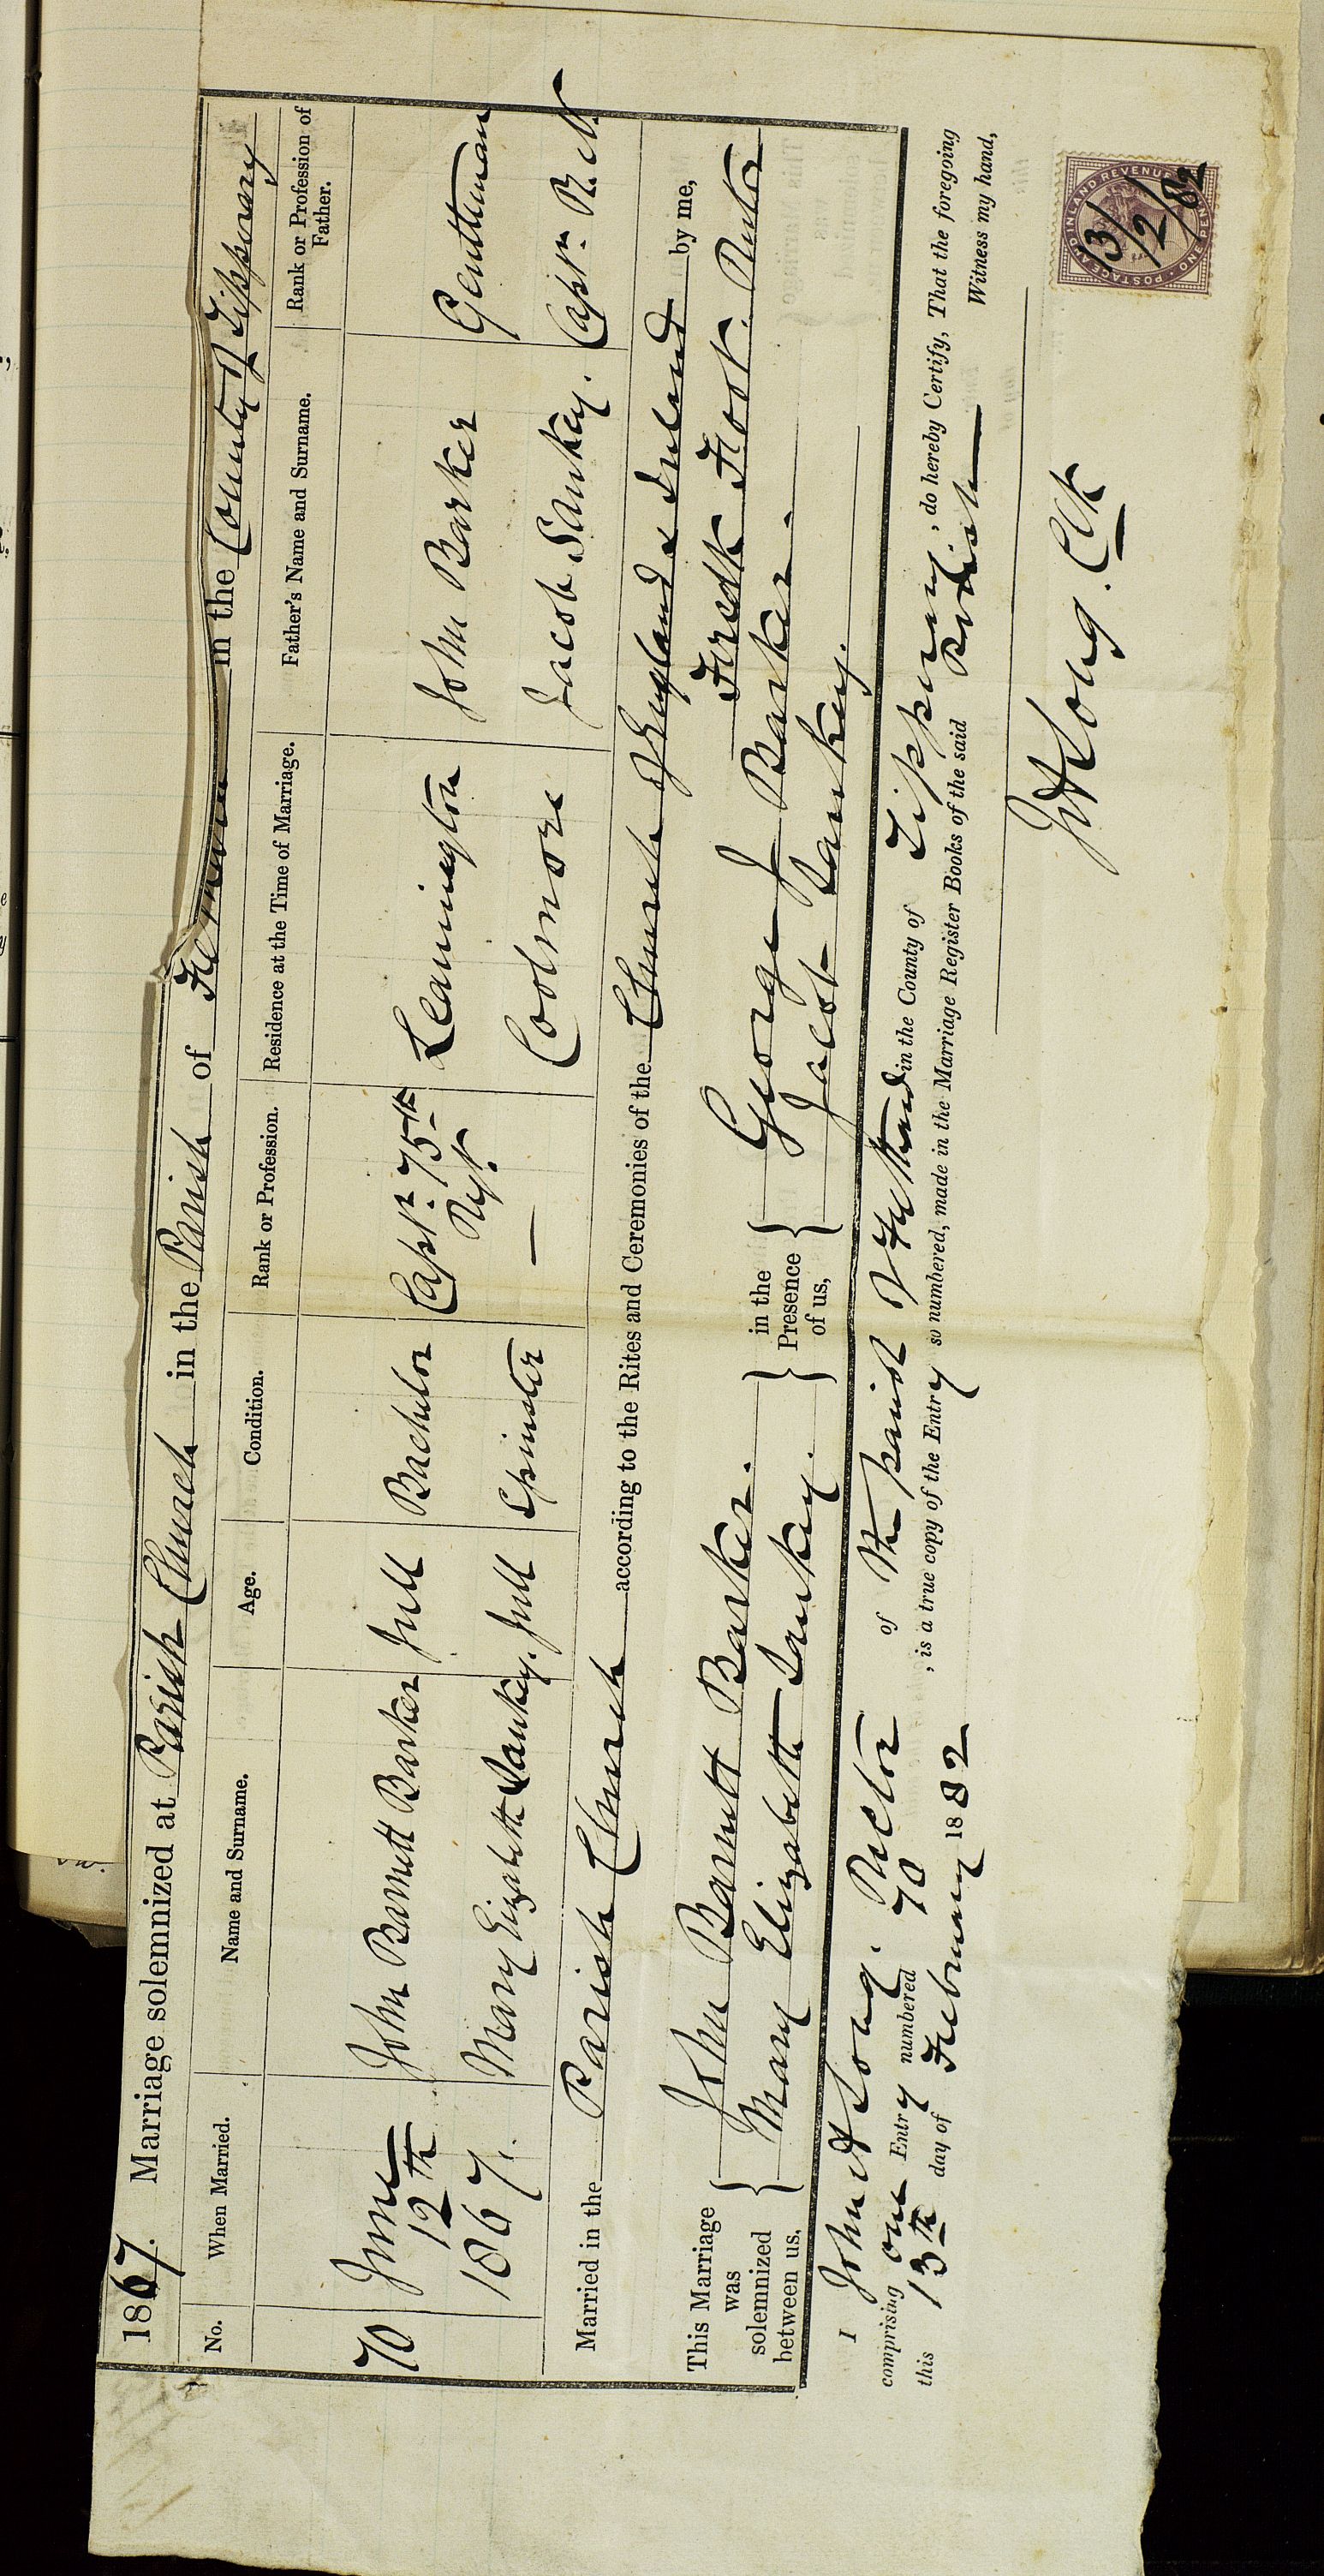 1867. Marriage solemnized at Parish Church in the Parish of in the County of Tipperary
No. When Married. Name and Surname. Age. Condition. Rank or Profession. Residence at the Time of Marriage. Father's Name and Surname. Rank or Profession of Father.
70 June 12th 1867. John Barnett Barker Full Bachelor Captn 75th Regt Leamington John Barker Gentleman
Mary Elizabeth Sankey. Full Spinster — Coolmore Jacob Sankey. Captn R.N.
Married in the Parish Church according to the Rites and Ceremonies of the Church of England & Ireland by me,
Fredk Foot. Rector
This Marriage was solemnized between us, John Barnett Barker. in the Presence of us, George J Barker.
Mary Elizabeth Sankey. Jacob Sankey.
I John H Long. Rector of the parish of Fethard in the County of Tipperary, do hereby Certify, That the foregoing
comprising one Entry numbered 70, is a true copy of the Entry so numbered, made in the Marriage Register Books of the said Parish Witness my hand,
this 13th day of February 1882
JH Long. Clk
POSTAGE AND INLAND REVENUE
ONE PENNY
13/2/82